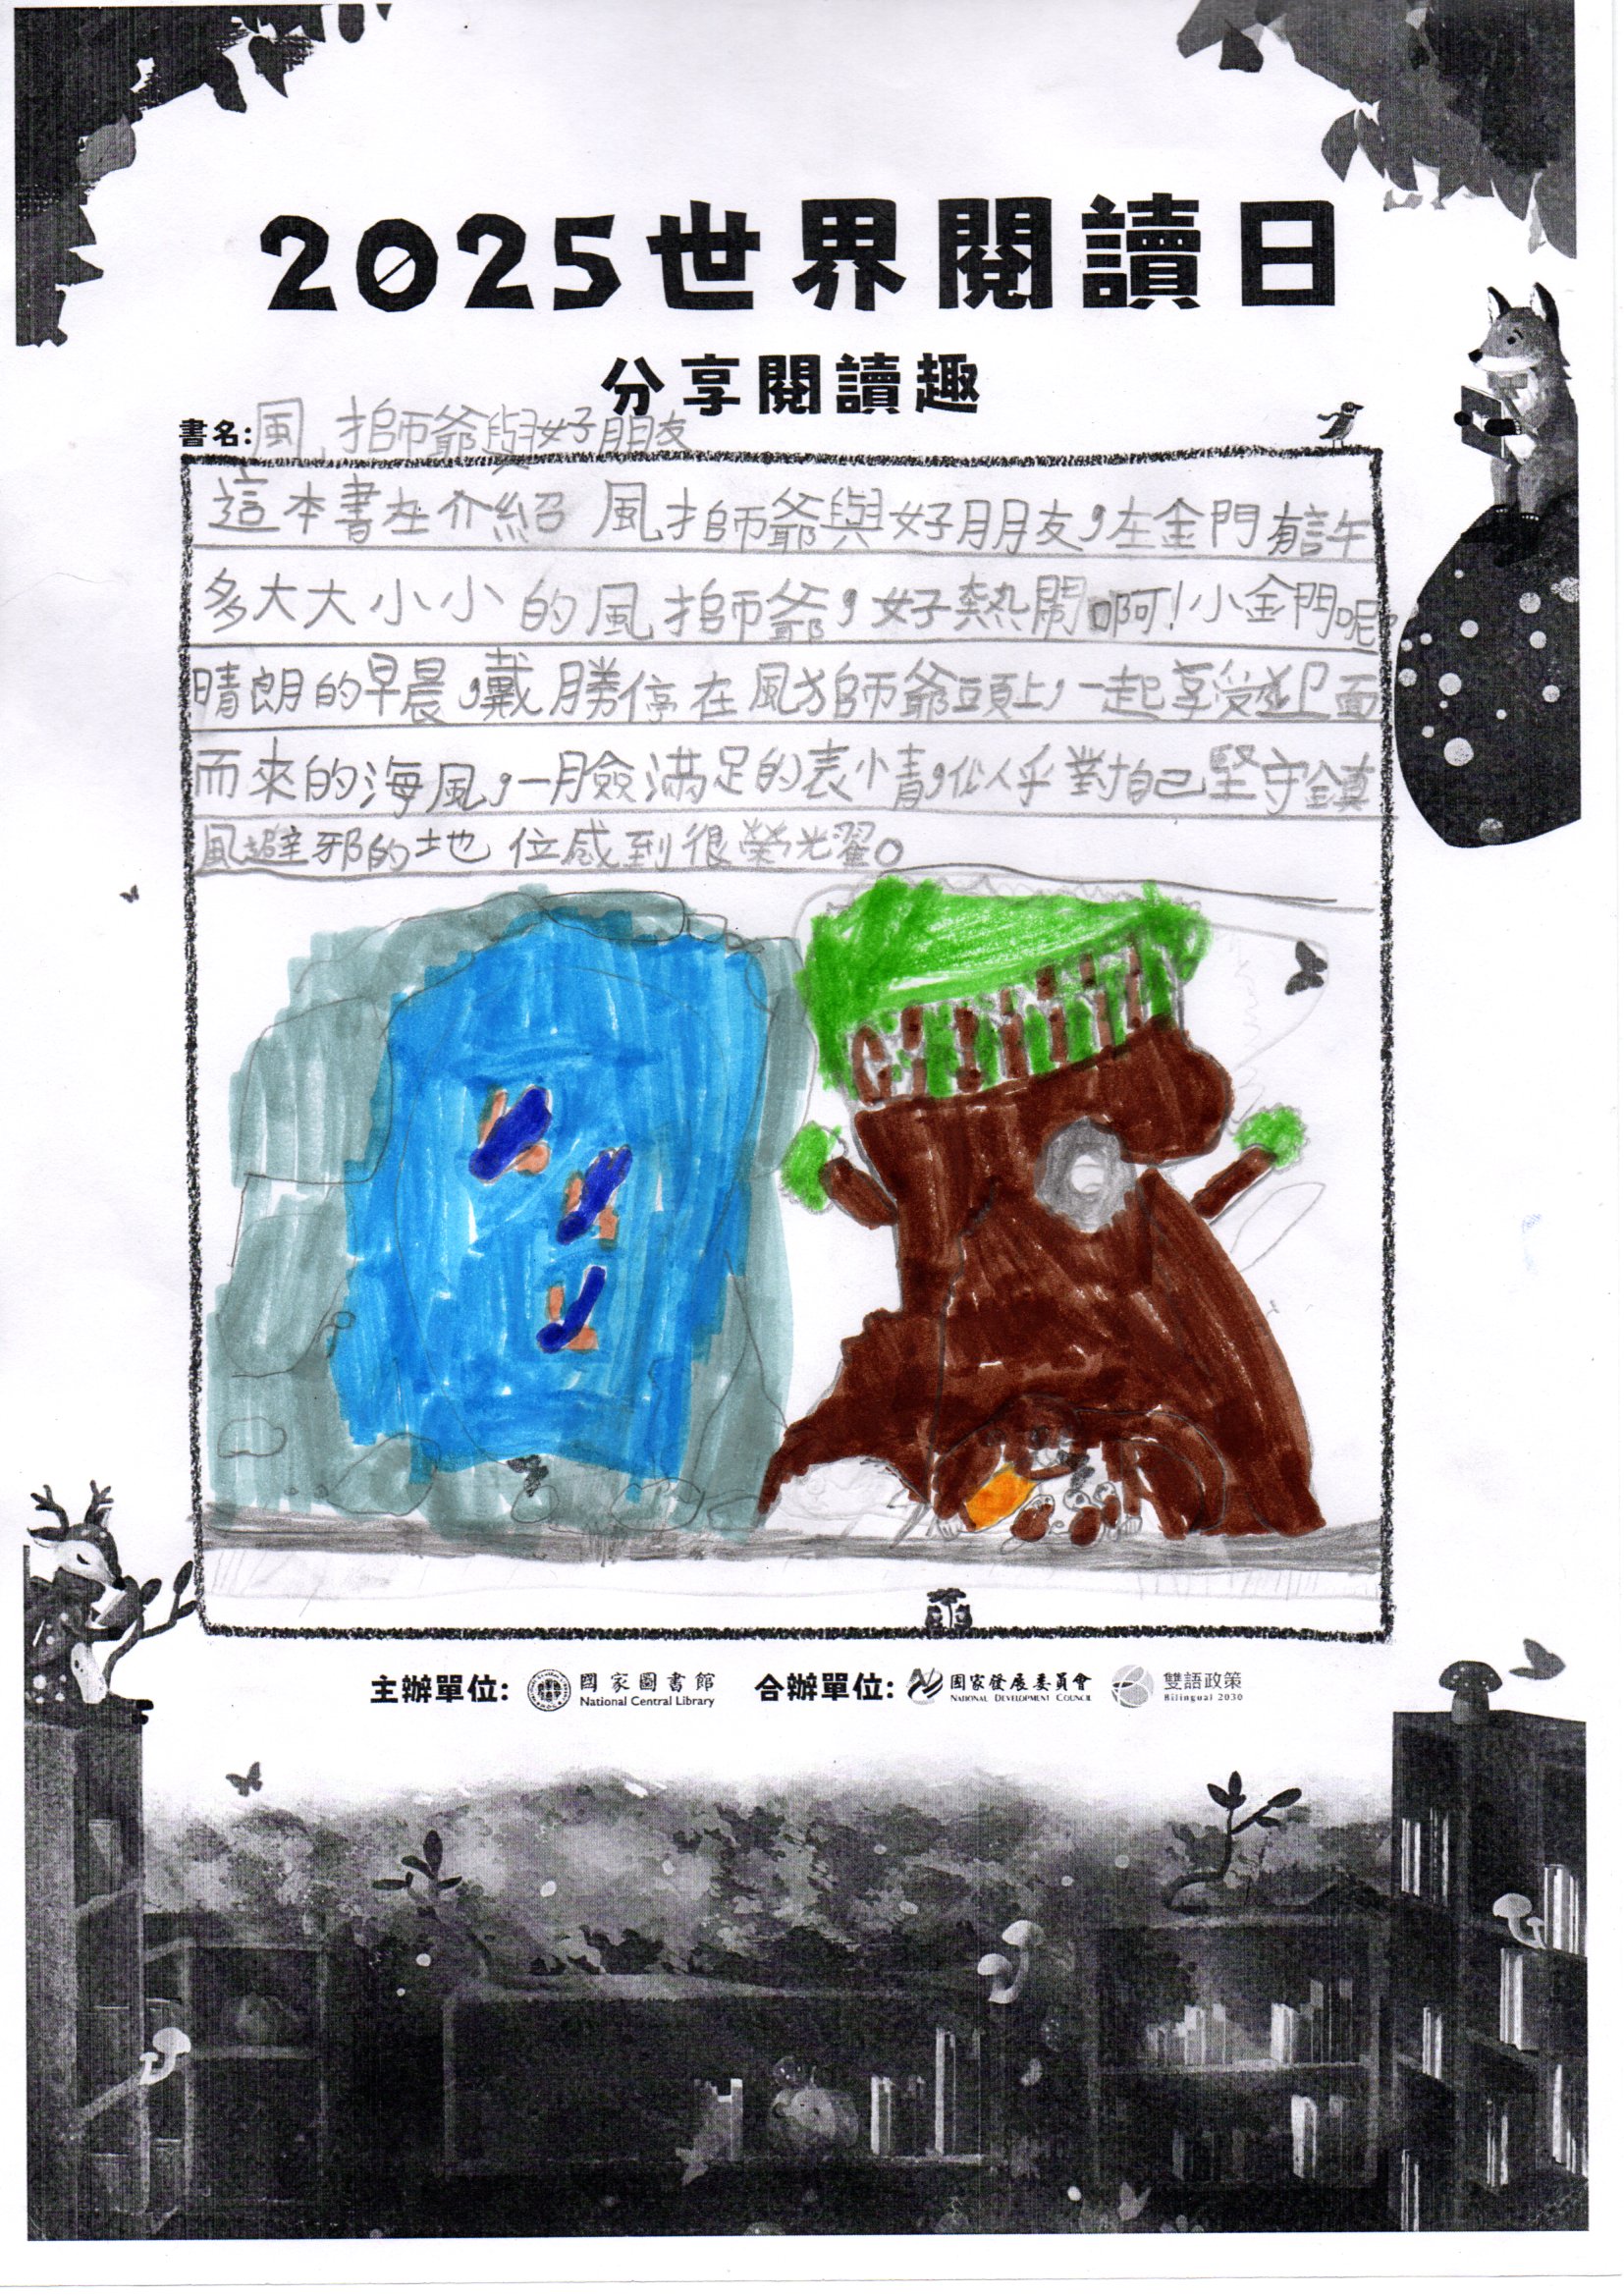 2025世界閱讀日
分享閱讀趣
書名:風獅爺與好朋友
這本書在介紹風獅爺與好朋友,在金門有許
多大大小小的風獅爺,好熱鬧啊!小金門呢?
晴朗的早晨,戴勝停在風獅爺頭上,一起享受迎面
而來的海風,一臉滿足的表情,似乎對自己堅守鎮
風避邪的地位感到很榮光耀。
主辦單位: 國家圖書館 National Central Library 合辦單位: 國家發展委員會 NATIONAL DEVELOPMENT COUNCIL 雙語政策 Bilingual 2030